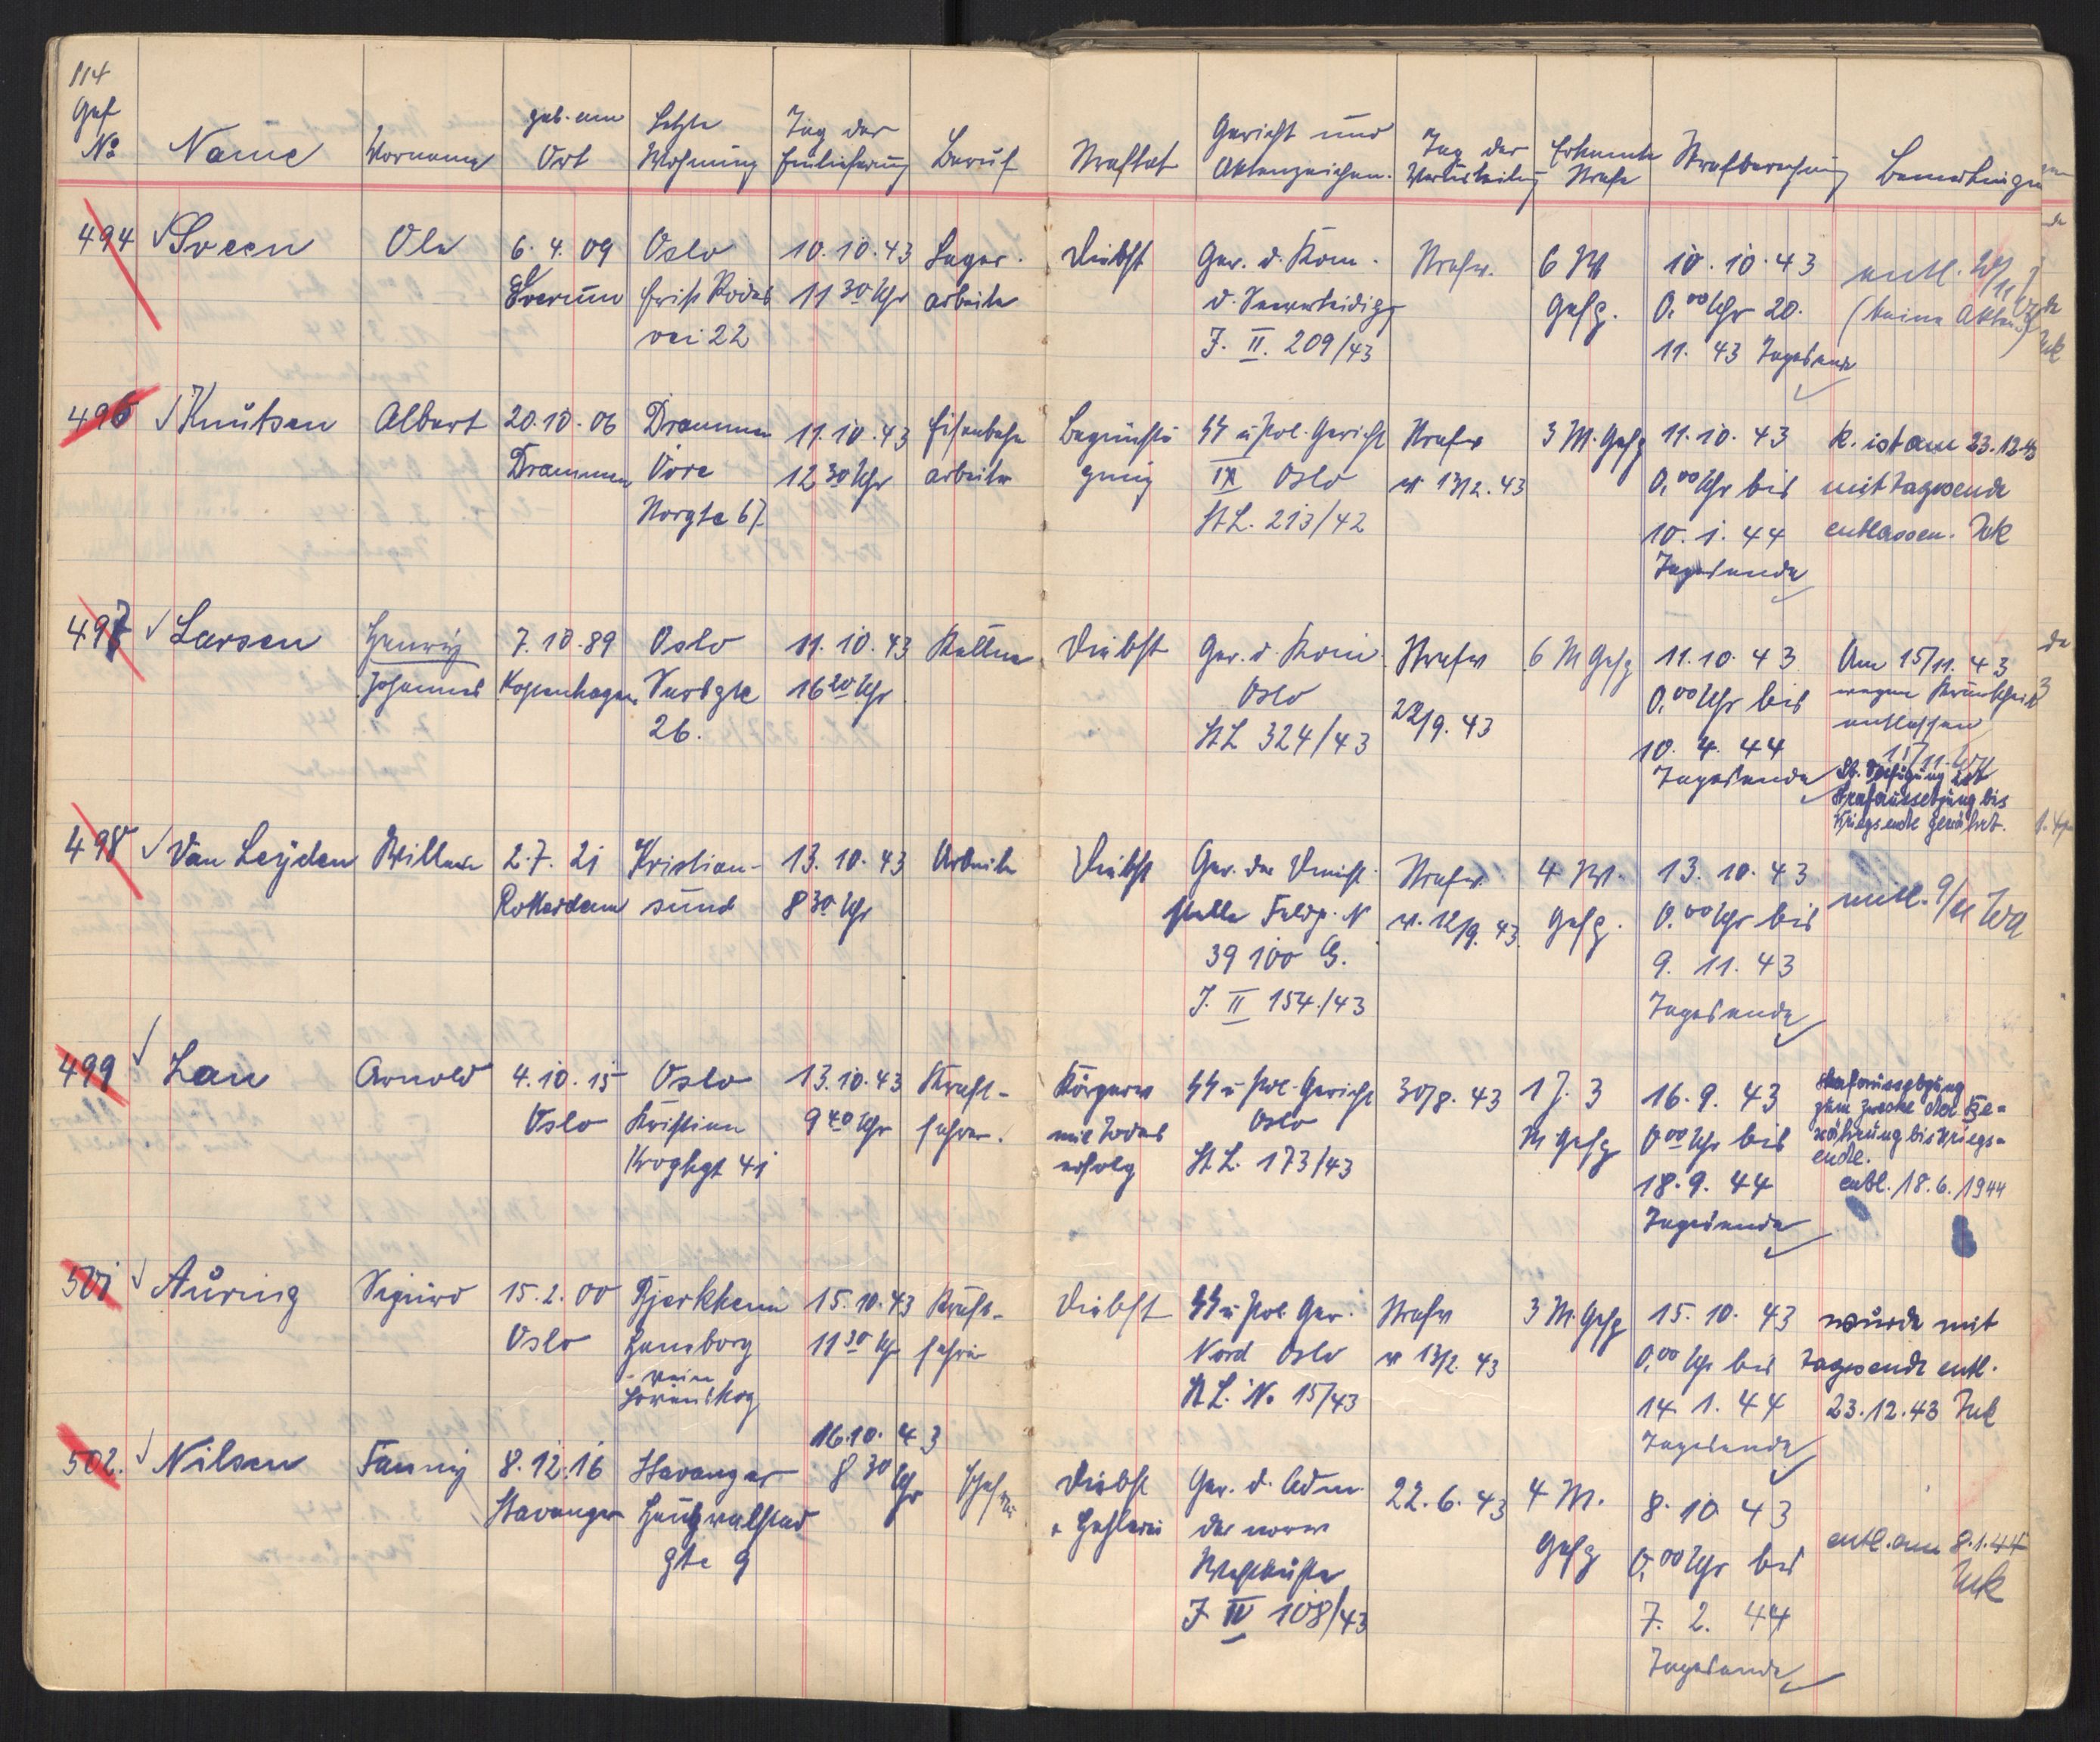 114
Gef No
Name
Vorname
geb. am Ort
Letzte Wohnung
Tag der Einlieferung
Beruf
Straftat
Gericht und Aktenzeichen.
Tag der Verurteilung
Erkannte Strafe
Strafberechnung
Bemerkungen
494 Sveen
Ole
6. 4. 09
Oslo
vei 22
10.10.43
11 30 Uhr
Lager-
arbeiter
Diebst
Ger. d. Kom.
J. II. 209/43
Strafv.
6 M
Gefg.
10. 10. 43
0,00 Uhr 20.
11. 43 Tagesende
entl.
(keine Akten)
496 Knutsen
Albert
20.10.06
Drammen
Drammen
Øvre
Storgte 67
11.10.43
12 30 Uhr
Eisenbahn
arbeiter
Begünsti
gung
SS u Pol. Gericht
IX Oslo
St.L. 213/42
Strafv
v. 13/2. 43
3 M. Gefg
11. 10. 43
0,00 Uhr bis
10. 1. 44
Tagesende
K. ist am 23.12.43
mit Tagesende
entlassen.
497 Larsen
Henrij
Johannes
7.10.89
Kopenhagen
Oslo
26.
11. 10. 43
16 20 Uhr
Kellner
Diebst
Ger. d. Kom.
Oslo
St.L 324/43
Strafv
22/9. 43
6 M Gefg
11. 10. 43
0,00 Uhr bis
10. 4. 44
Tagesende
Am 15/11. 43
wegen Krankheit
entlassen
Lt. Verfügung ist
Strafaussetzung bis
Kriegsende gewährt.
498 Van Leyden
Willem
2.7. 21
Rotterdam
Kristian-
sund
13. 10. 43
8 30 Uhr
Arbeiter
Diebst
Ger. der Dienst-
stelle Feldp. N
39 100 G.
J. II 154./43
Strafv.
v. 12/9. 43.
4 M.
Gefg.
13. 10. 43
0,00 Uhr bis
9. 11. 43
Tagesende
entl. 9/11
499 Lan
Arnold
4. 10. 15
Oslo
Oslo
Kristian
Kroghgt 41
13.10.43
9 40 Uhr
Kraft-
fahrer.
Körperv
mit Todes
erfolg
SS u Pol. Gericht
Oslo
St.L. 173/43
30/8. 43
1 J. 3
M. Gefg
16. 9. 43
0,00 Uhr bis
18. 9. 44
Tagesende
Strafaussetzung
zum Zwecke der Be=
währung bis Kriegs=
ende.
entl. 18. 6. 1944
501 Auring
Sigurd
15. 2. 00
Oslo
Bjerkheim
15.10.43
11 30 Uhr
Kraft-
fahrer
Diebst
SS u Pol. Ger.
Nord Oslo
St.L. No 15/43
Strafv
v 13/2. 43
3 M. Gefg
15. 10. 43
0,00 Uhr bis
14. 1. 44
Tagesende
wurde mit
Tagesende entl.
23.12.43
502. Nilsen
Fanny
8. 12. 16
Stavanger
Stavanger
gte 9
16.10. 43
8 30 Uhr
Diebst
+ Hehlerei
Ger. d. Adm.
der norw
Westküste
J IV 108/43
22. 6. 43
4 M.
Gefg
8. 10 43
0,00 Uhr bis
7. 2. 44
Tagesende
entl. am 8.1.44